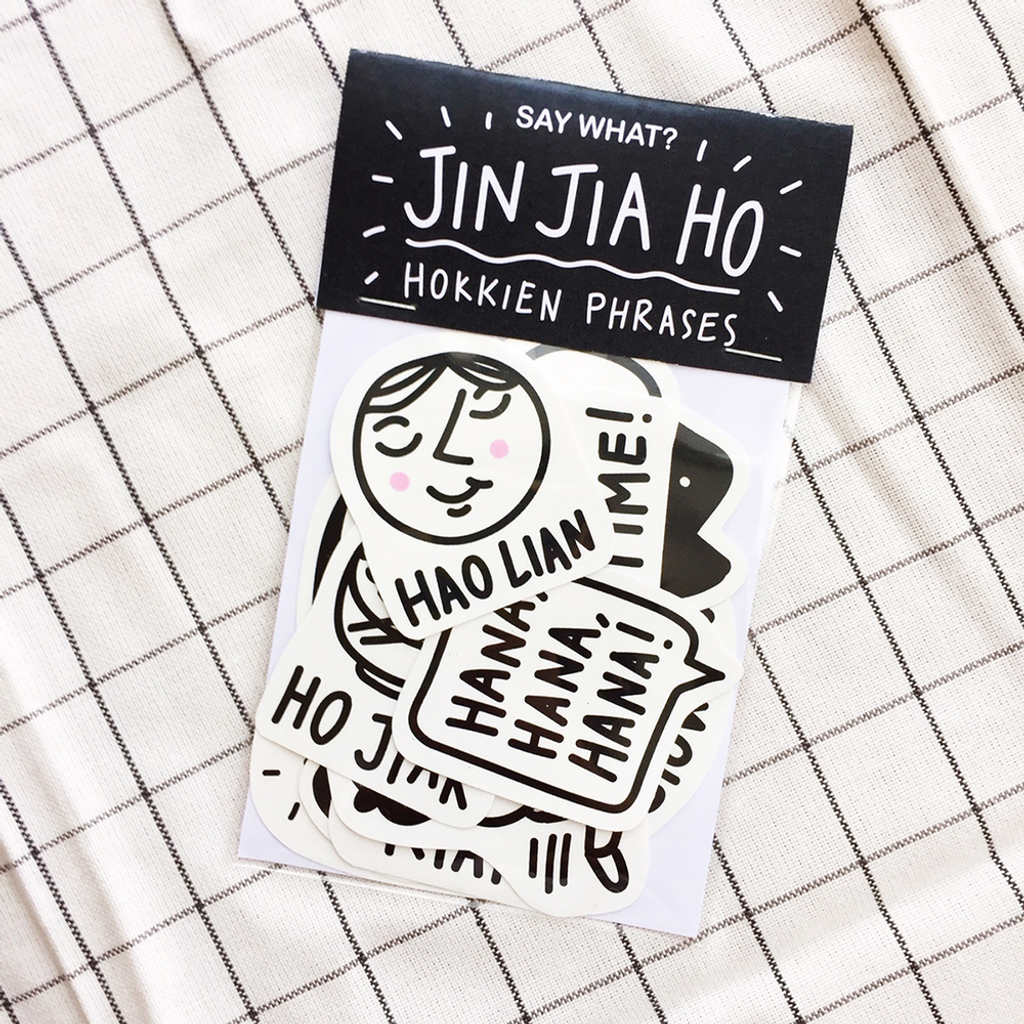 SAY WHAT?
JIN JIA HO
HOKKIEN PHRASES
TIME!
HAO LIAN
HANA,
HANA,
HANA!
HO JIAK